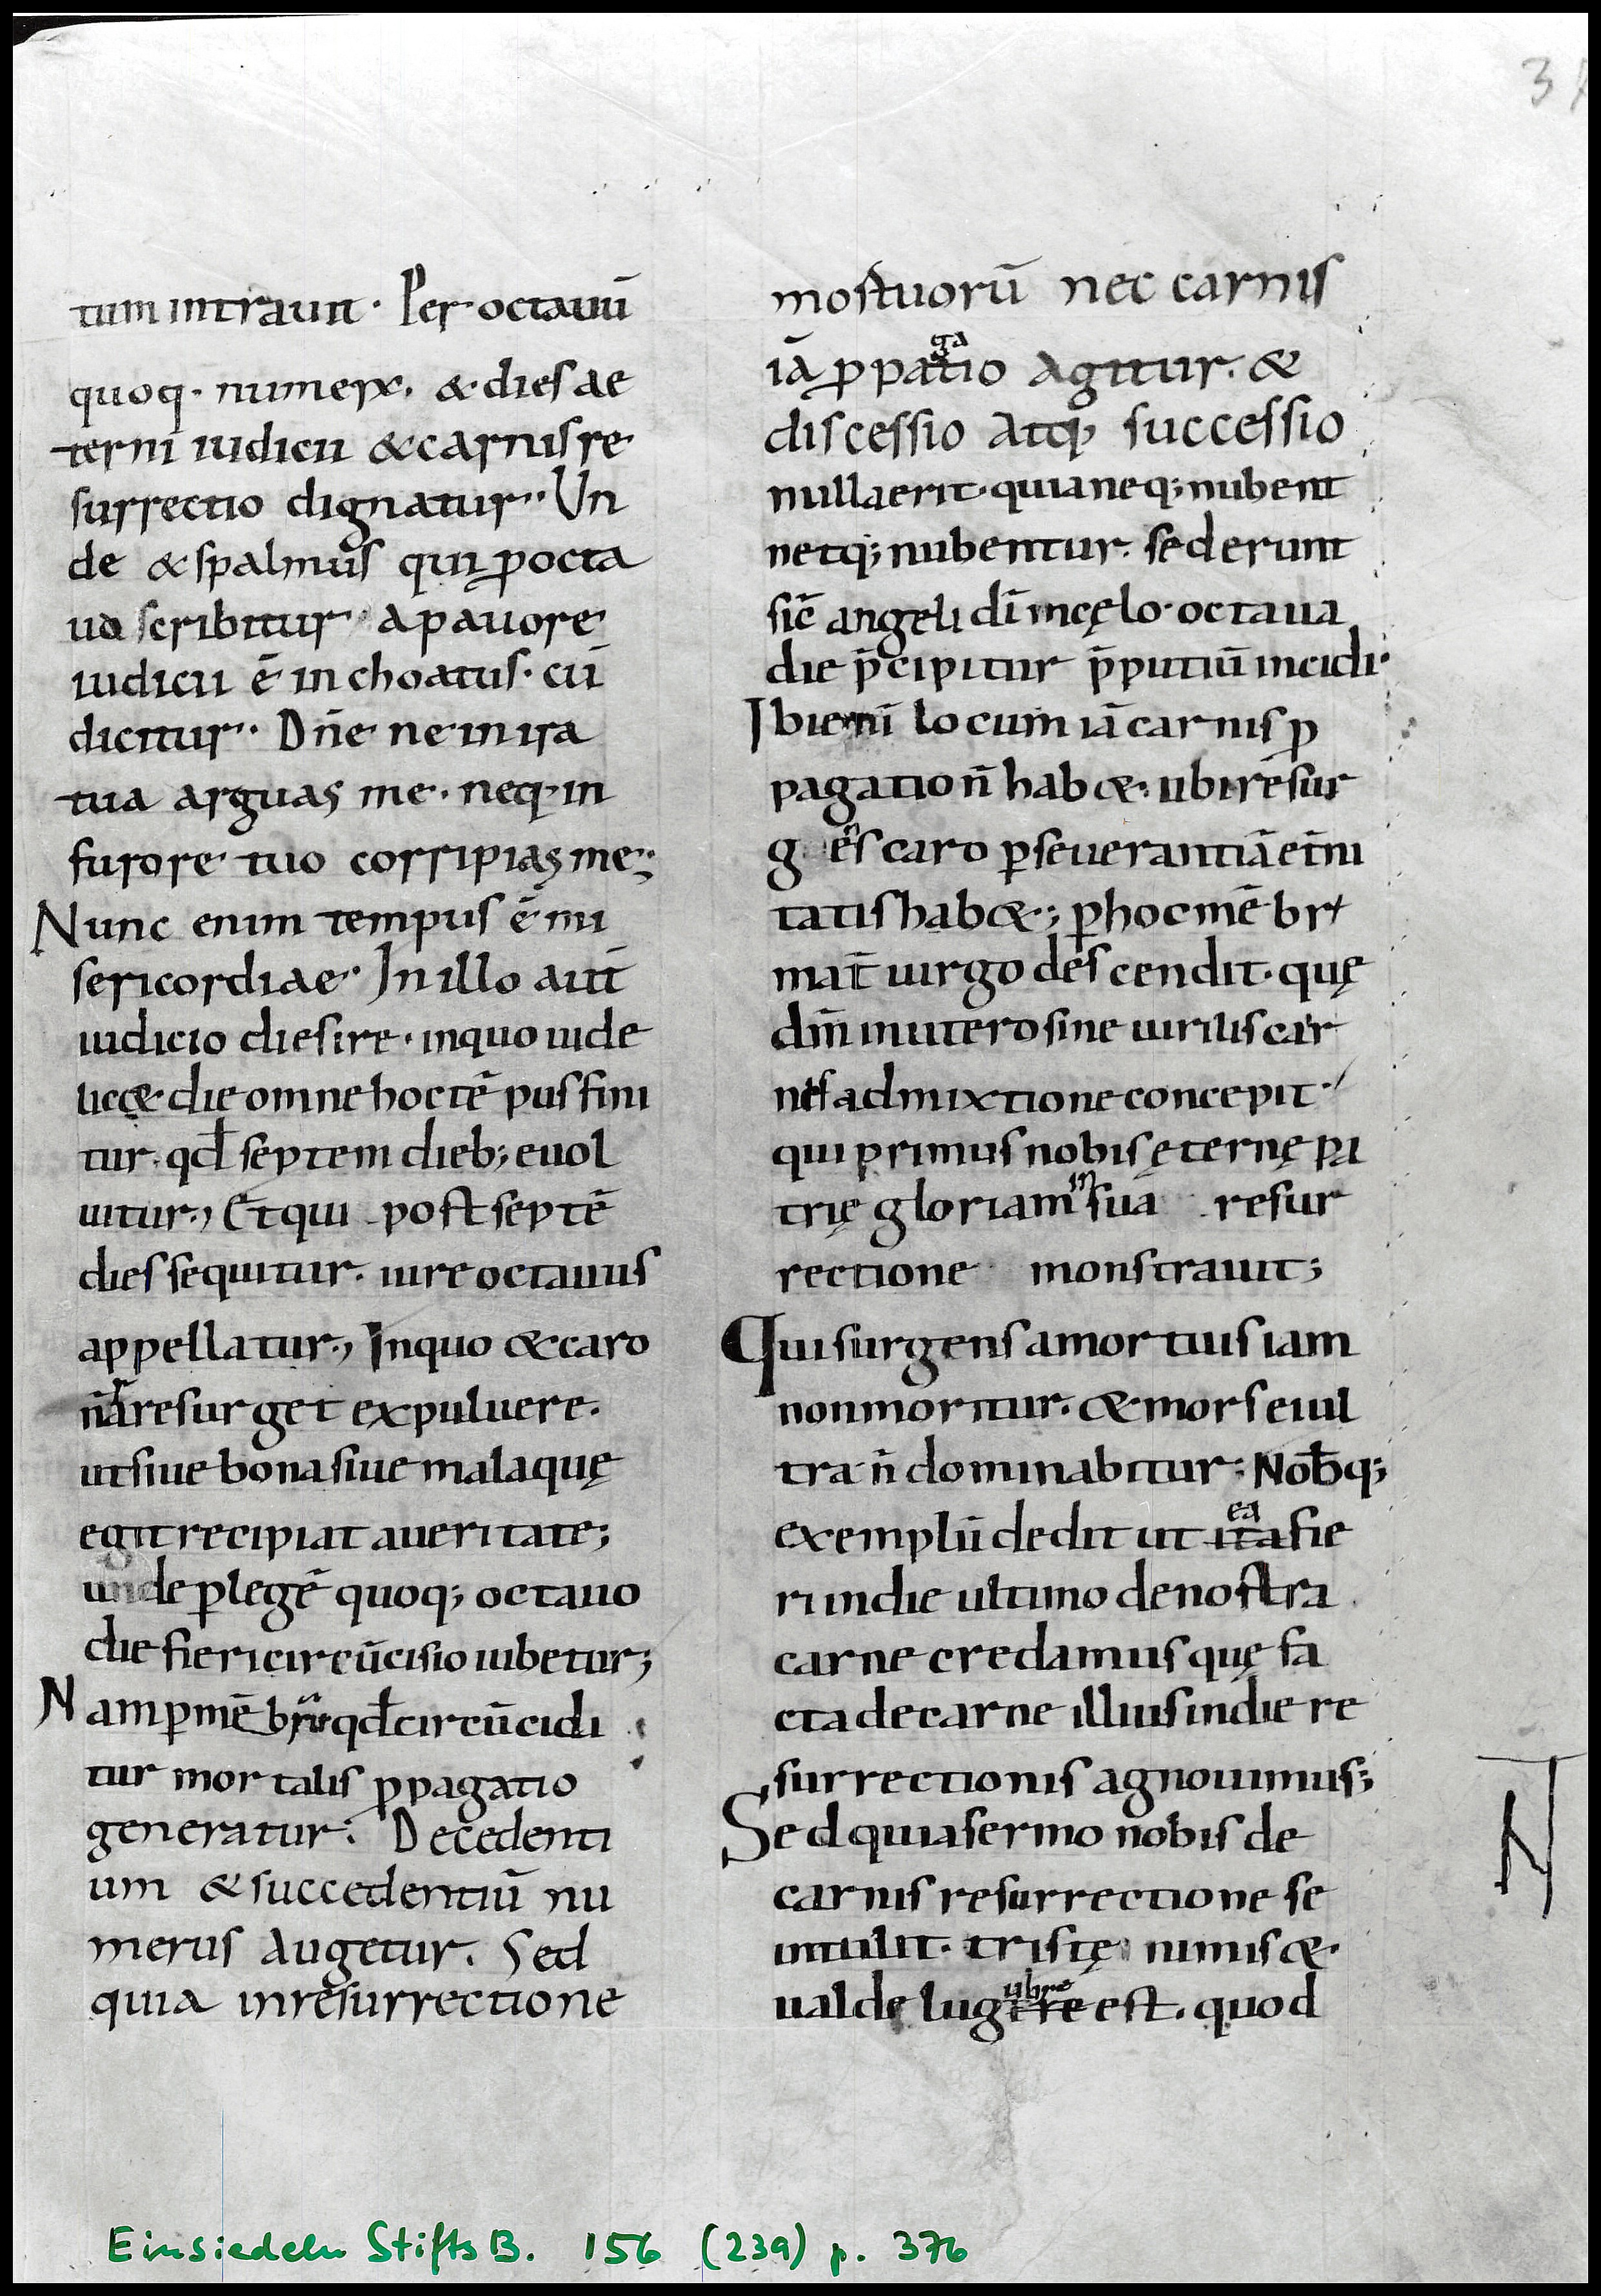 3
tum intrauit · Per octauū
quoq · numerū · & dies ae
terni iudicii & carnis re
surrectio dignatur · Un
de & spalmus qui ꝓ octa
ua scribitur · a pauore
iudicii ē inchoatus · cū
dicitur · Dñe ne in ira
tua arguas me · neq in
furore tuo corripias me ·;
Nunc enim tempus ē mi
sericordiae · In illo aut̄
iudicio dies ire · in quo uide
licę& die omne hoc tē pus fini
tur · qd̄ septem dieb; euol
uitur ·, Et qui post septē
dies sequitur · iure octauus
appellatur ·, In quo & caro
n̄ra resurget ex puluere ·
ut siue bona siue mala quę
egit recipiat a ueritate;
unde ꝑ legē quoq; octauo
die fieri circūcisio iubetur;
Nam ꝑ mē brū qd̄ circūcidi
tur mortalis ꝓpagatio
generatur · Decedenti
um & succedentiū nu
merus augetur · Sed
quia in resurrectione
mortuorū nec carnis
iā ꝓpagatio agitur · &
discessio atq; successio
nulla erit · quia neq; nubent
netq; nubentur · sed erunt
sic̄ angeli dī in cęlo · octaua
die p̄cipitur p̄putiū incidi ·
Ibi eni locum iā carnis ꝓ
pagatio n̄ hab& · ubi resur
gens caro ꝑseuerantiā et̄ni
tatis hab& ·; ꝑ hoc mē br
mat̄ uirgo descendit · quę
dm̄ in utero sine uirilis car
nis admixtione concepit ·
qui primus nobis ęternę pa
trię gloriam in suā resur
rectione monstrauit;
Qui surgens a mortuis iam
non moritur · & mors ei ul
tra n̄ dominabitur; Nob̄q;
exemplū dedit ut ita ea fie
ri in die ultimo de nostra
carne credamus quę fa
cta de carne illius in die re
surrectionis agnouimus;
Sed quia sermo nobis de
carnis resurrectione se
intulit · tristę nimis & ·
ualde lugubre est · quod
N
Einsiedeln StiftsB. 156 (239) p. 376